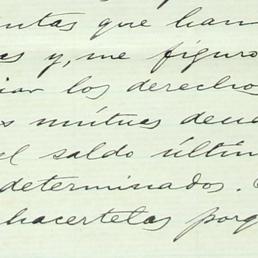 ntas que han
as y, me figuro
iar los derechos
s mútuas deud
el saldo últim
determinados.
hacertelas porq